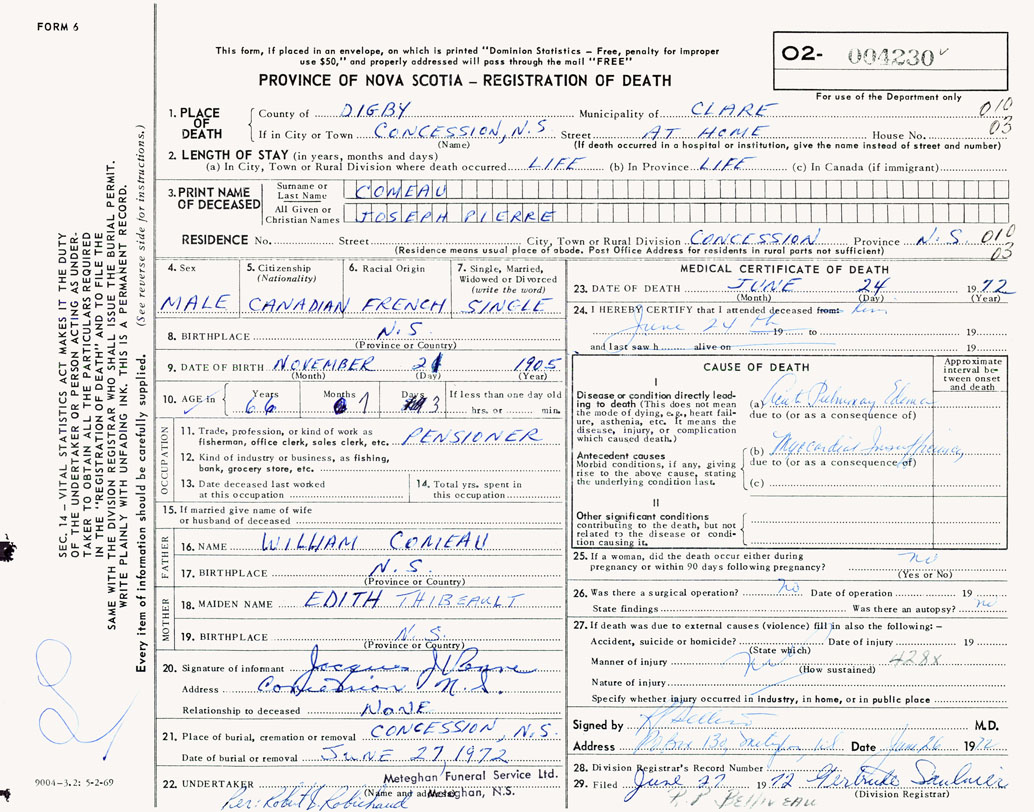 FORM 6
This form, if placed in an envelope, on which is printed "Dominion Statistics – Free, penalty for improper
use $50," and properly addressed will pass through the mail "FREE"
PROVINCE OF NOVA SCOTIA – REGISTRATION OF DEATH
O2- 004230
For use of the Department only
SEC. 14 – VITAL STATISTICS ACT MAKES IT THE DUTY
OF THE UNDERTAKER OR PERSON ACTING AS UNDER-
TAKER TO OBTAIN ALL THE PARTICULARS REQUIRED
IN THE "REGISTRATION OF DEATH" AND TO FILE THE
SAME WITH THE DIVISION REGISTRAR WHO SHALL ISSUE THE BURIAL PERMIT.
WRITE PLAINLY WITH UNFADING INK. THIS IS A PERMANENT RECORD.
Every item of information should be carefully supplied. (See reverse side for instructions.)
1. PLACE OF DEATH County of DIGBY Municipality of CLARE 010
If in City or Town CONCESSION, N.S Street AT HOME House No. 03
(Name) (If death occurred in a hospital or institution, give the name instead of street and number)
2. LENGTH OF STAY (in years, months and days)
(a) In City, Town or Rural Division where death occurred LIFE (b) In Province LIFE (c) In Canada (if immigrant)
3. PRINT NAME OF DECEASED Surname or Last Name COMEAU
All Given or Christian Names JOSEPH PIERRE
RESIDENCE No. Street City, Town or Rural Division CONCESSION Province N.S 010
(Residence means usual place of abode. Post Office Address for residents in rural parts not sufficient) 03
4. Sex MALE
5. Citizenship (Nationality) CANADIAN
6. Racial Origin FRENCH
7. Single, Married, Widowed or Divorced (write the word) SINGLE
8. BIRTHPLACE N.S.
(Province or Country)
9. DATE OF BIRTH NOVEMBER 21 1905
(Month) (Day) (Year)
10. AGE in Years 66 Months 7 Days 3 If less than one day old hrs. or min.
OCCUPATION
11. Trade, profession or kind of work as
fisherman, office clerk, sales clerk, etc. PENSIONER
12. Kind of industry or business, as fishing,
bank, grocery store, etc.
13. Date deceased last worked
at this occupation
14. Total yrs. spent in
this occupation
15. If married give name of wife
or husband of deceased
FATHER
16. NAME WILLIAM COMEAU
17. BIRTHPLACE N.S.
(Province or Country)
MOTHER
18. MAIDEN NAME EDITH THIBEAULT
19. BIRTHPLACE N.S.
(Province or Country)
20. Signature of informant Jacques
Address Concession N.S.
Relationship to deceased NONE
21. Place of burial, cremation or removal CONCESSION, N.S.
Date of burial or removal JUNE 27, 1972
22. UNDERTAKER Meteghan Funeral Service Ltd.
(Name and address) Meteghan, N.S.
Per: Robert J. Robichaud
9004-3.2: 5-2-69
MEDICAL CERTIFICATE OF DEATH
23. DATE OF DEATH JUNE 24 1972
(Month) (Day) (Year)
24. I HEREBY CERTIFY that I attended deceased from: him
June 24 th 19 to 19
and last saw h alive on 19
CAUSE OF DEATH
Approximate interval between onset and death
I
Disease or condition directly lead-
ing to death (This does not mean
the mode of dying, e.g., heart fail-
ure, asthenia, etc. It means the
disease, injury, or complication
which caused death.)
(a) Acute Pulmonary Edema
due to (or as a consequence of)
Antecedent causes
Morbid conditions, if any, giving
rise to the above cause, stating
the underlying condition last.
(b) Myocardial Insufficiency
due to (or as a consequence of)
(c)
II
Other significant conditions
contributing to the death, but not
related to the disease or condi-
tion causing it.
25. If a woman, did the death occur either during
pregnancy or within 90 days following pregnancy? no
(Yes or No)
26. Was there a surgical operation? no Date of operation 19
State findings Was there an autopsy? no
27. If death was due to external causes (violence) fill in also the following: –
Accident, suicide or homicide? Date of injury 19
(State which)
Manner of injury 428x
(How sustained)
Nature of injury
Specify whether injury occurred in industry, in home, or in public place
Signed by M.D.
Address Box 130, Meteghan N.S Date June 26 1972
28. Division Registrar's Record Number
29. Filed June 27 1972 Gertrude Saulnier
(Division Registrar)
R P BELLIVEAU